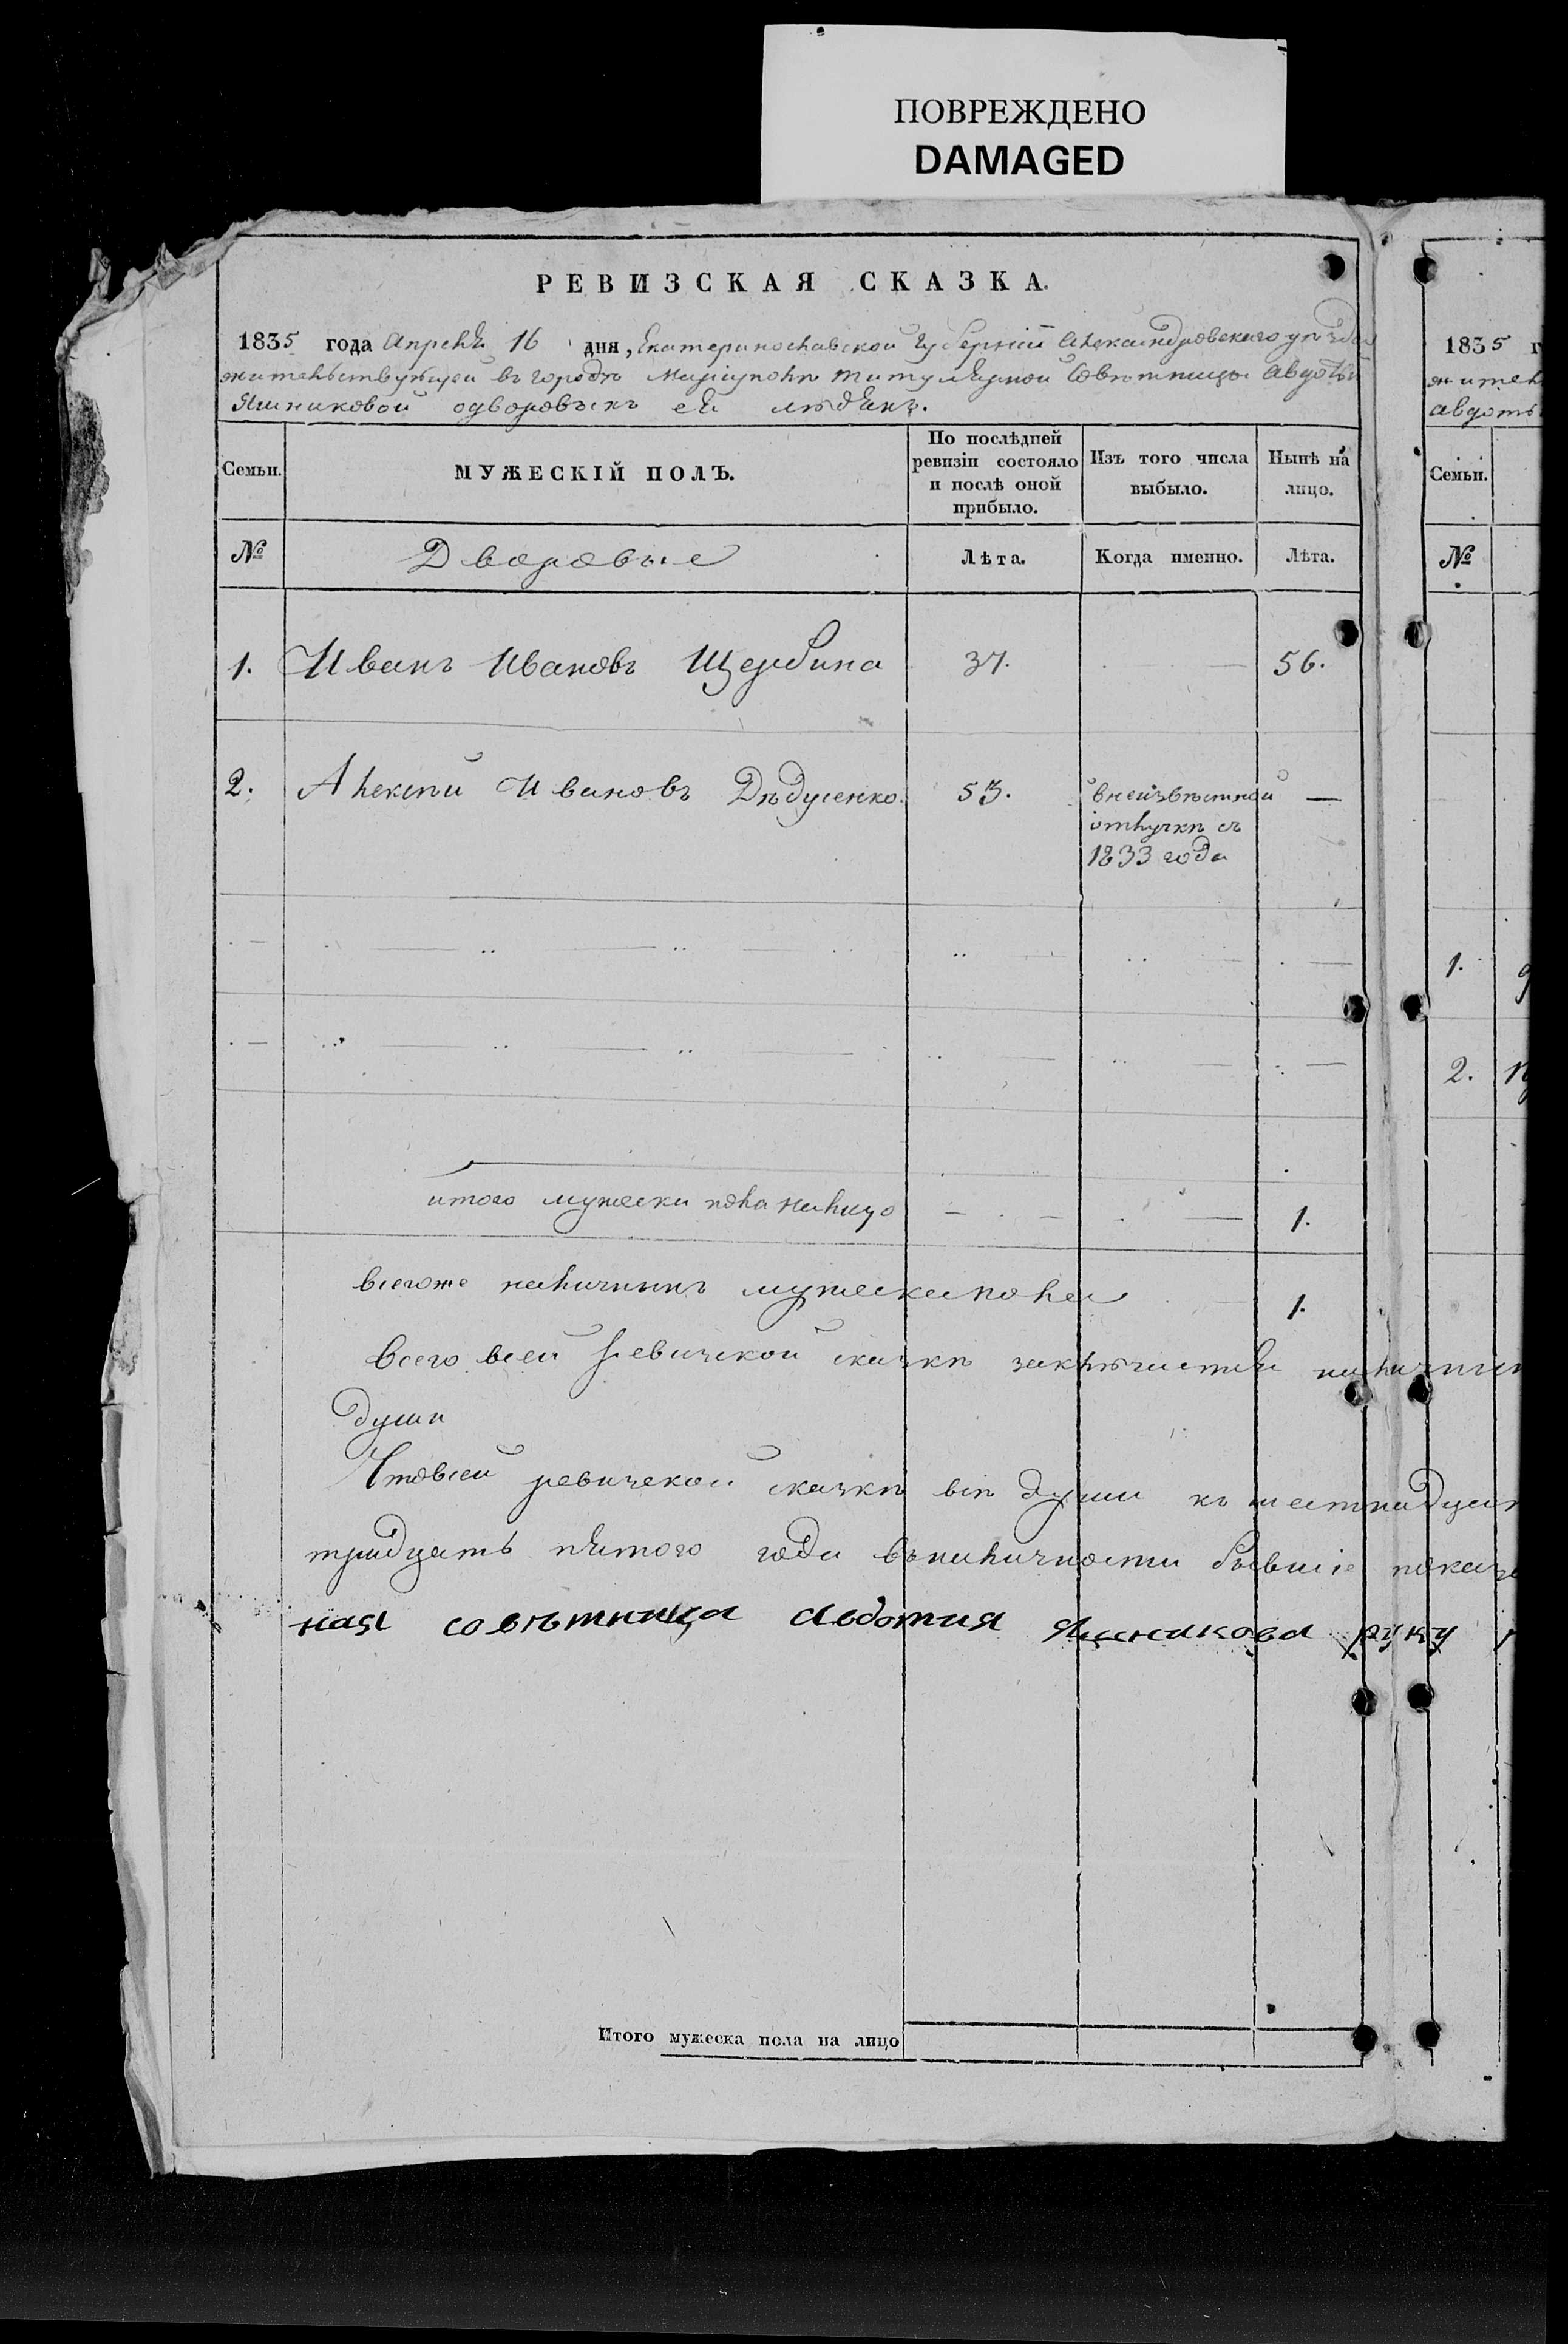 ПОВРЕЖДЕНО
DAMAGED
РЕВИЗСКАЯ СКАЗКА.
1835 года Апреля 16 дня, Екатеринославской губернiи Александровского уѣзда
жительствующей въ городѣ Марiуполѣ титулярной Совѣтницы Авдотьи
Яшниковой одворовыхъ ея людяхъ.
Семьи.
МУЖЕСКІЙ ПОЛЪ.
По послѣдней ревизіи состояло и послѣ оной прибыло.
Изъ того числа выбыло.
Нынѣ на лицо.
№
Дворовые
Лѣта.
Когда именно.
Лѣта.
1. Иванъ Ивановъ Щербина 37. — 56.
2. Алексѣй Ивановъ Дѣдусенко. 53. внеизвѣстной —
отлучкѣ съ
1833 года
итого мужеска пола налицо — — — 1.
всегоже наличныхъ мужеска пола — 1.
Всего всей ревизской сказкѣ заключается
души
Чтовсей ревизской сказкѣ всѣ души къ
тридцать пятого года въналичности бывшiе
ная совѣтница Авдотия Яшникова руку
Итого мужеска пола на лицо
1835 г
жител
авдоть
Семьи.
№
1.
2.